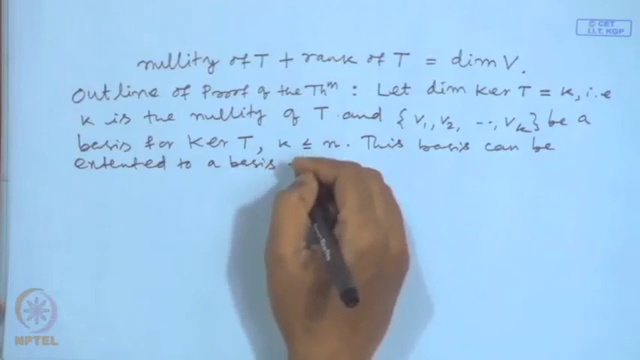 © CET
I.I.T. KGP
nullity of T + rank of T = dim V.
Outline of Proof of the Thm : Let dim Ker T = k, i.e
k is the nullity of T and {v1, v2, ..., vk} be a
basis for Ker T, k ≤ n. This basis can be
extented to a basis
NPTEL